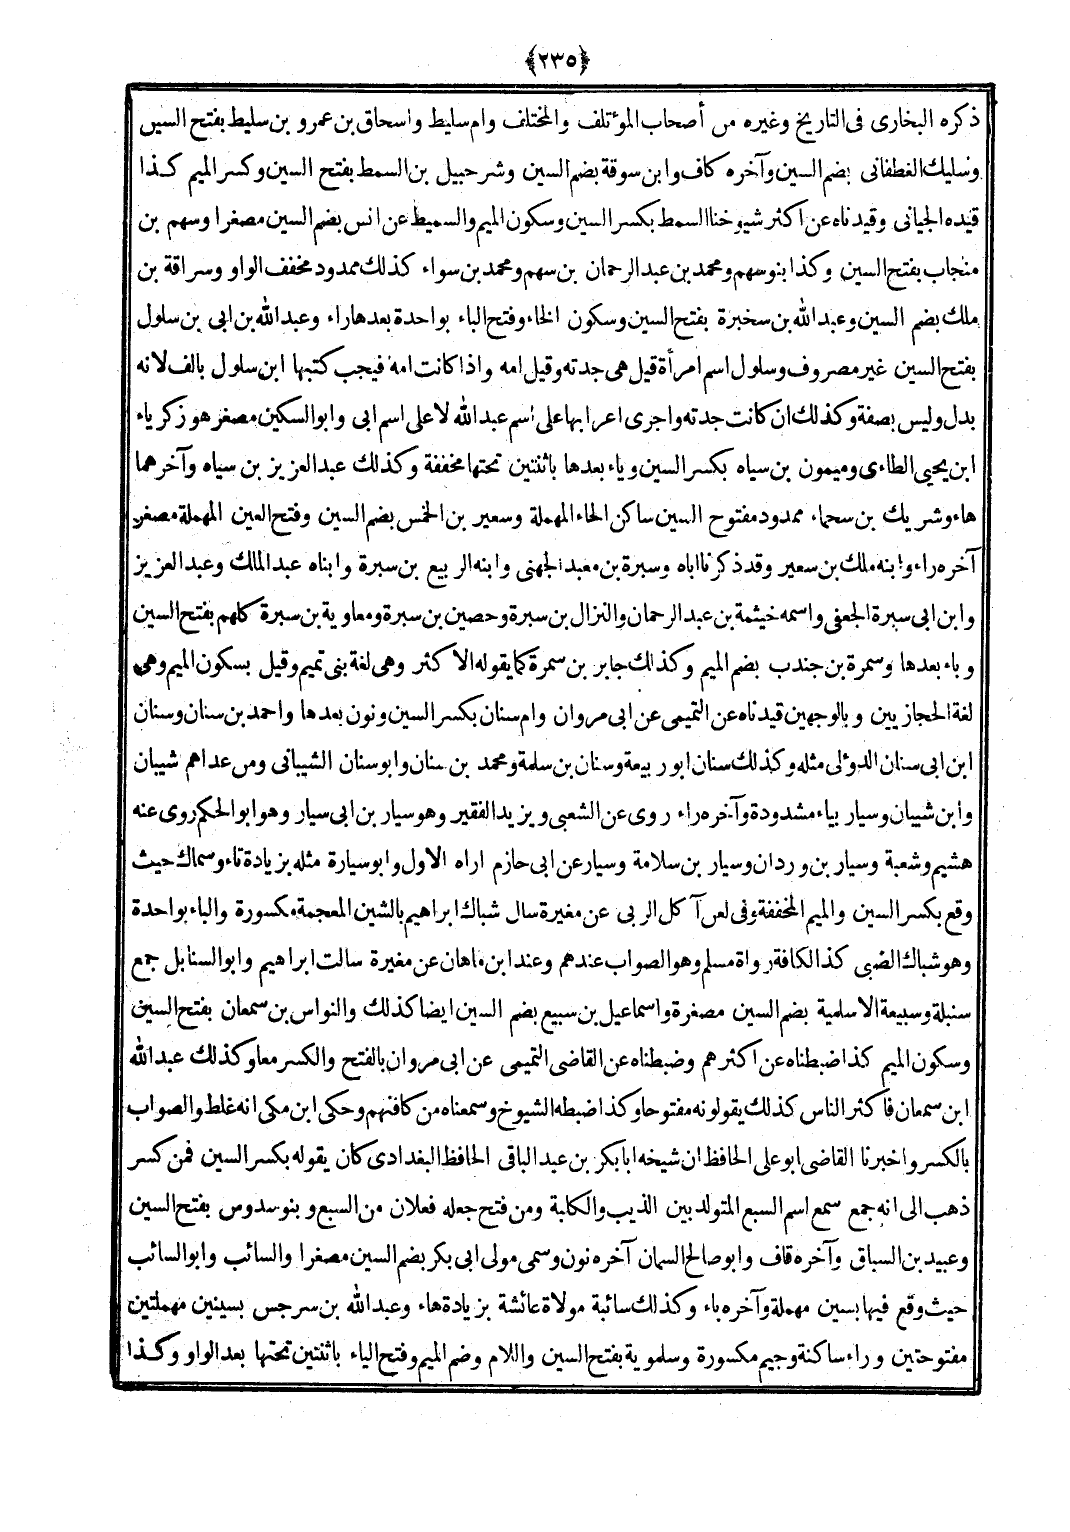 ﴿٢٣٥﴾
ذكره البخارى فى التاريخ وغيره من أصحاب المؤتلف والمختلف وام سليط واسحاق بن عمرو بن سليط بفتح السين
وسليك الغطفانى بضم السين وآخره كاف وابن سوقة بضم السين وشرحبيل بن السمط بفتح السين وكسر الميم كذا
قيده الجيانى وقيدناه عن اكثر شيوخنا السمط بكسر السين وسكون الميم والسميط عن انس بضم السين مصغرا وسهم بن
منجاب بفتح السين وكذا بنو سهم ومحمد بن عبد الرحمان بن سهم ومحمد بن سواء كذلك ممدود مخفف الواو وسراقة بن
ملك بضم السين وعبد الله بن سخبرة بفتح السين وسكون الخاء وفتح الباء بواحدة بعدها راء وعبد الله بن ابى بن سلول
بفتح السين غير مصروف وسلول اسم امرأة قيل هى جدته وقيل امه واذا كانت امه فيجب كتبها ابن سلول بالف لانه
بدل وليس بصفة وكذلك ان كانت جدته واجرى اعرابها على اسم عبد الله لا على اسم ابى وابو السكين مصغر هو زكرياء
ابن يحيى الطاءى وميمون بن سياه بكسر السين وياء بعدها باثنتين تحتها مخففة وكذلك عبد العزيز بن سياه وآخرهما
هاء وشريك بن سحماء ممدود مفتوح السين ساكن الحاء المهملة وسعير بن الخمس بضم السين وفتح العين المهملة مصغر
آخره راء وابنه ملك بن سعير وقد ذكرنا اباه وسبرة بن معبد الجهنى وابنه الربيع بن سبرة وابناه عبد الملك وعبد العزيز
وابن ابى سبرة الجعفى واسمه خيثمة بن عبد الرحمان والنزال بن سبرة وحصين بن سبرة ومعاوية بن سبرة كلهم بفتح السين
وباء بعدها وسمرة بن جندب بضم الميم وكذلك جابر بن سمرة كما يقوله الاكثر وهى لغة بنى تميم وقيل بسكون الميم وهى
لغة الحجازيين وبالوجهين قيدناه عن التميمى عن ابى مروان وام سنان بكسر السين ونون بعدها واحمد بن سنان وسنان
ابن ابى سنان الدوئلى مثله وكذلك سنان ابو ربيعة وسنان بن سلمة ومحمد بن سنان وابو سنان الشيبانى ومن عداهم شيبان
وابن شيبان وسيار بياء مشدودة وآخره راء روى عن الشعبى ويزيد الفقير وهو سيار بن ابى سيار وهو ابو الحكم روى عنه
هشيم وشعبة وسيار بن وردان وسيار بن سلامة وسيار عن ابى حازم اراه الاول وابو سيارة مثله بزيادة تاء وسماك حيث
وقع بكسر السين والميم المخففة وفى لعن آكل الربى عن مغيرة سال شباك ابراهيم بالشين المعجمة مكسورة والباء بواحدة
وهو شباك الضبى كذا لكافة رواة مسلم وهو الصواب عندهم وعند ابن ماهان عن مغيرة سالت ابراهيم وابو السنابل جمع
سنبلة وسبيعة الاسلمية بضم السين مصغرة واسماعيل بن سبيع بضم السين ايضا كذلك والنواس بن سمعان بفتح السين
وسكون الميم كذا ضبطناه عن اكثرهم وضبطناه عن القاضى التميمى عن ابى مروان بالفتح والكسر معا وكذلك عبد الله
ابن سمعان فاكثر الناس كذلك يقولونه مفتوحا وكذا ضبطه الشيوخ وسمعناه من كافتهم وحكى ابن مكى انه غلط والصواب
بالكسر واخبرنا القاضى ابو على الحافظ ان شيخه ابا بكر بن عبد الباقى الحافظ البغدادى كان يقوله بكسر السين فمن كسر
ذهب الى انه جمع سمع اسم السبع المتولد بين الذيب والكلبة ومن فتح جعله فعلان من السبع وبنو سدوس بفتح السين
وعبيد بن السباق وآخره قاف وابو صالح السمان آخره نون وسمى مولى ابى بكر بضم السين مصغرا والسائب وابو السائب
حيث وقع فيها بسين مهملة وآخره باء وكذلك سائبة مولاة عائشة بزيادة هاء وعبد الله بن سرجس بسينين مهملتين
مفتوحتين وراء ساكنة وجيم مكسورة وسلموية بفتح السين واللام وضم الميم وفتح الياء باثنتين تحتها بعد الواو وكذا